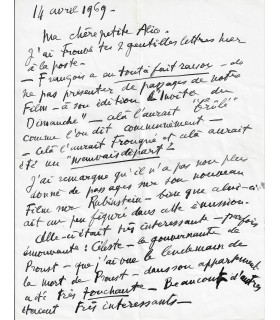 14 avril 1969 -
Ma chère petite Alice.
J'ai trouvé tes 2 gentilles lettres hier
à la poste.
- François a eu tout à fait raison - de
ne pas présenter de passages de notre
Film - à son édition "L'Invité du
Dimanche" - celà l'aurait "Brûlé"
comme l'on dit communément -
- celà l'aurait tronqué et celà aurait
été un "mauvais départ"?
J'ai remarqué qu'il n'a pas non plus
donné de passages sur son nouveau
Film sur Rubinstein - bien que celui-ci
ait un peu figuré dans cette émission.
Celle-ci était très intéressante - parfois
émouvante: Céleste - la gouvernante de
Proust - que j'ai vue le lendemain de
la mort de Proust - dans son appartement
a été très touchante - Beaucoup d'autres
étaient très intéressants -